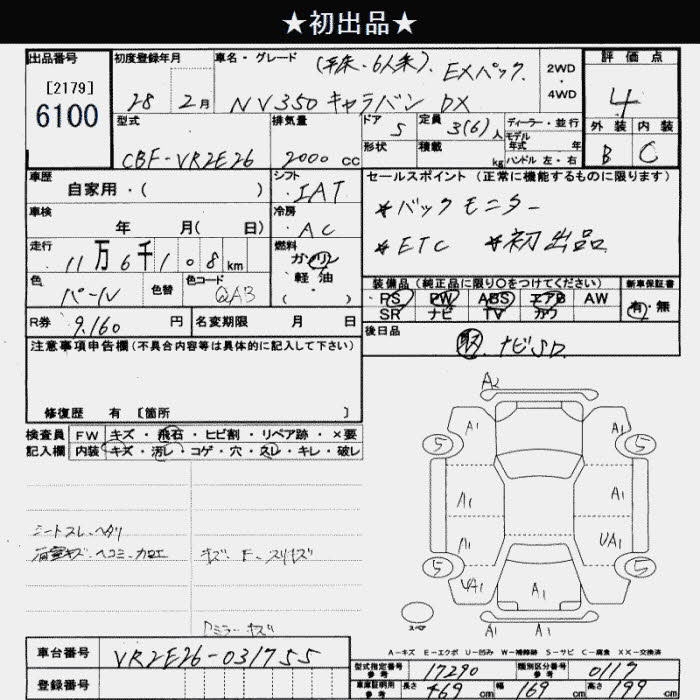 ★初出品★
出品番号 初度登録年月 車名・グレード (平床.6人乗). EXパック 2WD・4WD 評価点
[2179] 6100 28 2月 NV350 キャラバン DX 4
型式 排気量 ドア 5 定員 3(6)人 ディーラー・並行 外装 内装
CBF-VR2E26 2000 cc 形状 積載 kg モデル年式 年 ハンドル 左・右 B C
車歴 シフト セールスポイント (正常に機能するものに限ります)
自家用・( ) IAT
車検 冷房 *バックモニター
年 月( 日) AC *ETC *初出品
走行 燃料
11万6千108km ガソリン
色 色替 色コード 軽油 装備品 (純正品に限り○をつけてください) 新車保証書
パール QAB ( ・ ) PS PW ABS エアB AW 有・無
SR ナビ TV カワ
R券 9.160 円 名変期限 月 日 後日品
注意事項申告欄 (不具合内容等は具体的に記入して下さい) 取 . ナビSD.
修復歴 有 [箇所 ]
検査員 FW キズ・飛石・ヒビ割・リペア跡・×要
記入欄 内装 キズ・汚レ・コゲ・穴・スレ・キレ・破レ
A2
A1 A1
5 5
A1 A1
A1 UA1
5 5
UA1 A1
A1
シートスレ.ヘタリ
荷室キズ.ヘコミ.カロエ キズ.E.スリキズ
Dミラーキズ
スペア
A-キズ E-エクボ U-凹み W-補修跡 S-サビ C-腐食 XX-交換済
車台番号 VR2E26-031755
型式指定番号 参考 17290 類別区分番号 参考 0119
登録番号
車庫証明用 参考 長さ 469 cm 幅 169 cm 高さ 199 cm